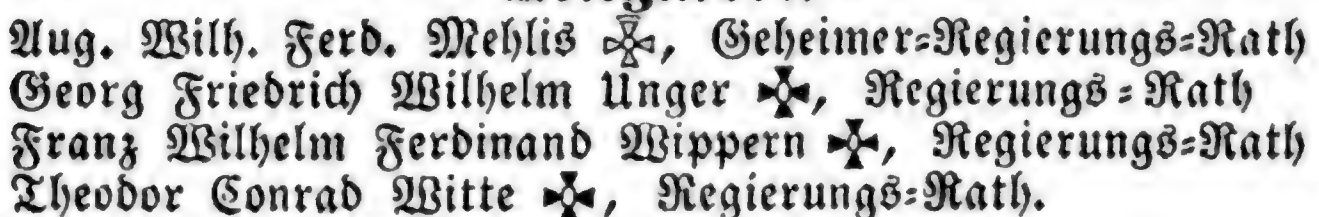 Aug. Wilh. Ferd. Mehlis ✠, Geheimer-Regierungs-Rath
Georg Friedrich Wilhelm Unger ✠, Regierungs-Rath
Franz Wilhelm Ferdinand Wippern ✠, Regierungs-Rath
Theodor Conrad Witte ✠, Regierungs-Rath.